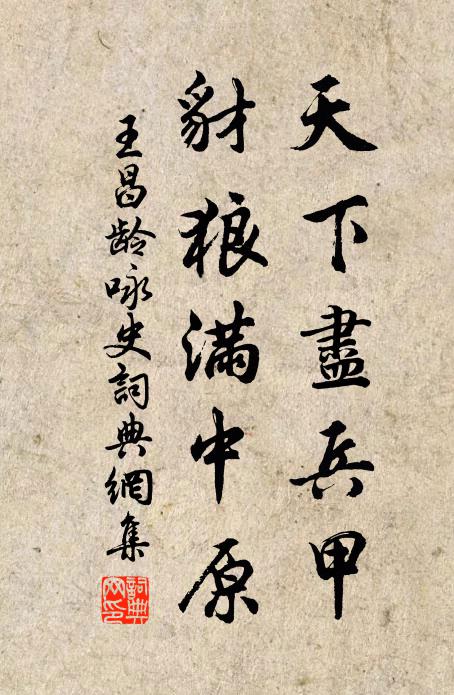 天下盡兵甲
豺狼滿中原
王昌龄咏史詞典網集
詞典网印